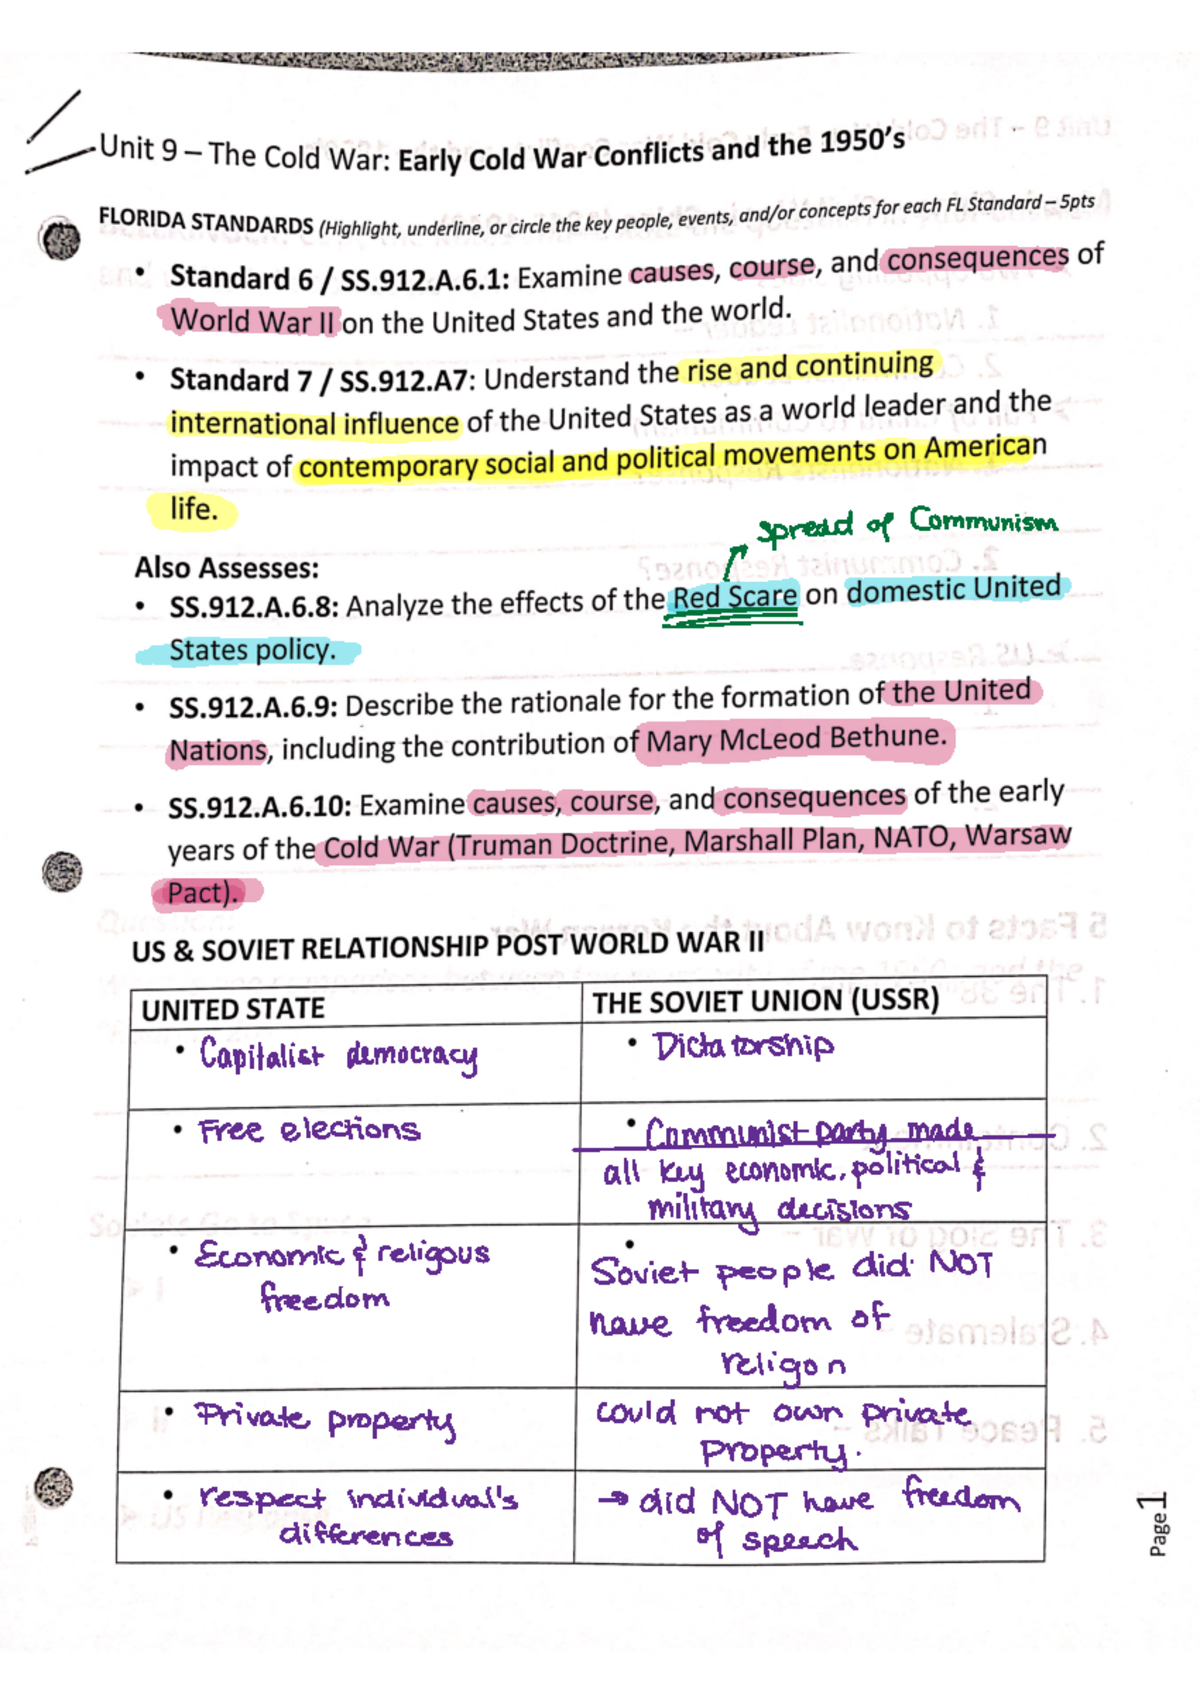 Unit 9 – The Cold War: Early Cold War Conflicts and the 1950's
FLORIDA STANDARDS (Highlight, underline, or circle the key people, events, and/or concepts for each FL Standard – 5pts
• Standard 6 / SS.912.A.6.1: Examine causes, course, and consequences of
World War II on the United States and the world.
• Standard 7 / SS.912.A7: Understand the rise and continuing
international influence of the United States as a world leader and the
impact of contemporary social and political movements on American
life.
spread of Communism
Also Assesses:
• SS.912.A.6.8: Analyze the effects of the Red Scare on domestic United
States policy.
• SS.912.A.6.9: Describe the rationale for the formation of the United
Nations, including the contribution of Mary McLeod Bethune.
• SS.912.A.6.10: Examine causes, course, and consequences of the early
years of the Cold War (Truman Doctrine, Marshall Plan, NATO, Warsaw
Pact).
US & SOVIET RELATIONSHIP POST WORLD WAR II
UNITED STATE
THE SOVIET UNION (USSR)
• Capitalist democracy
• Dictatorship
• Free elections
• Communist party made
all key economic, political &
military decisions
• Economic & religous
freedom
• Soviet people did NOT
have freedom of
religon
• Private property
could not own private
property.
• respect individual's
differences
→ did NOT have freedom
of speech
Page 1